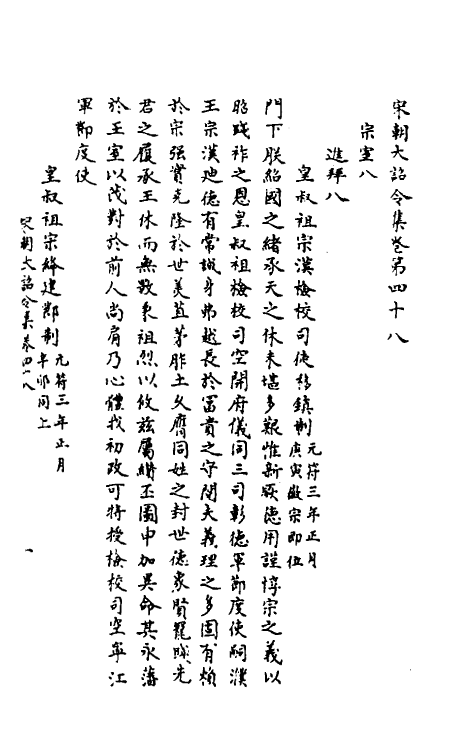 宋朝大詔令集卷第四十八
宗室八
進拜八
皇叔祖宗漢檢校司徒移鎮制元符三年正月庚寅徽宗即位
門下朕紹國之緒承天之休未堪多艱惟新厥德用謹惇宗之義以
昭踐祚之恩皇叔祖檢校司空開府儀同三司彰德軍節度使嗣濮
王宗漢迪德有常城身弗越長於富貴之守閑夫義理之多固有賴
於宗强實克隆於世美苴茅胙土久膺同姓之封世德象賢寵賤先
君之履承王休而無斁秉祖烈以攸玆屬纘丕圖申加異命其永藩
於王室以茂對於前人尚肩乃心體我初政可特授檢校司空寧江
軍節度使
皇叔祖宗絳建節制元符三年正月辛卯同上
宋朝大詔令集卷四十八
一